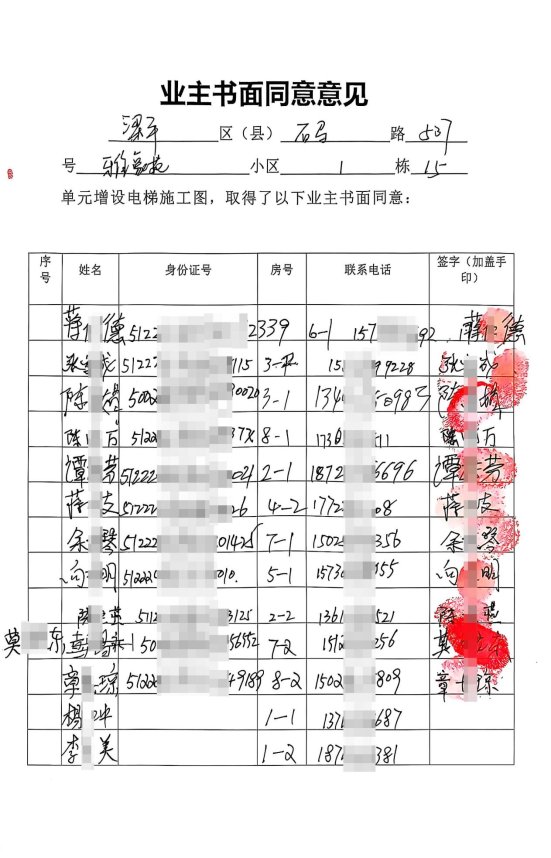 业主书面同意意见
梁平 区（县） 石马 路 507
号 小区 1 栋 15
单元增设电梯施工图，取得了以下业主书面同意：
序号 姓名 身份证号 房号 联系电话 签字（加盖手印）
蒋 德 5122 2339 6-1 157 92 蒋 德
张 成 51222 115 3-2 15 99228 张 成
陈 5002 0020 3-1 134 983 陈
陈 万 5122 37X 8-1 1730 11 陈 万
谭 芳 51222 021 2-1 1872 6696 谭 芳
蒋 支 51222 26 4-2 1772 08 蒋 支
余 琴 51222 01425 7-1 1502 356 余 琴
向 明 51222 010. 5-1 1573 155 向 明
陈 燕 512 3125 2-2 1361 521 陈 燕
莫 东 50 56552 7-2 1512 256 莫 东
章 琼 51222 49189 8-2 1502 809 章 琼
杨 冲 1-1 137 687
李 美 1-2 187 381